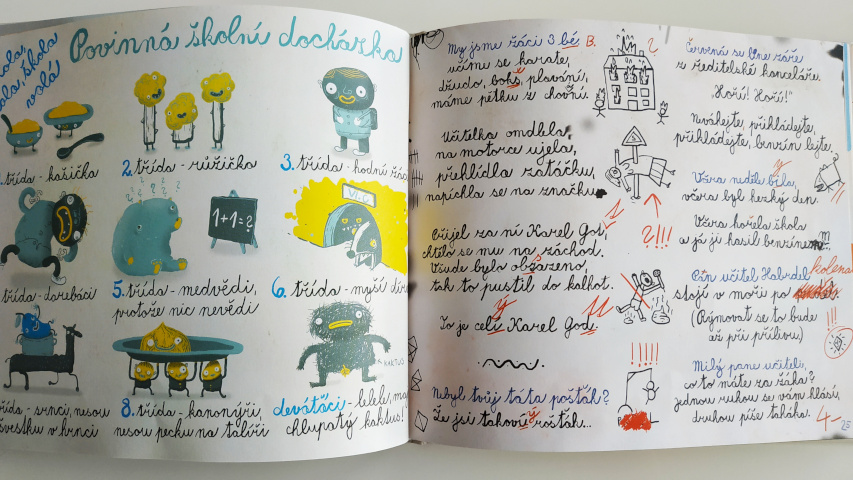 škola
volá
Povinná školní docházka
třída - kašička
2. třída - růžička
3. třída - hodní
třída - darebáci
1+1=?
5. třída - medvědi,
protože nic nevědí
6. třída - myší
třída - srnci, nesou
švestku v hrnci
8. třída - kanonýři,
nesou pecku na talíři
KAKTUS
deváťáci - lelele, mají
chlupatý kaktus!
My jsme žáci 3 bé B.
učíme se karate,
džudo, boks, plavání,
máme pětku z chování.
?
Učitelka omdlela,
na motorce ujela,
přehlídla zatáčku,
napíchla se na značku
Přijel za ní Karel Got,
chtělo se mu na záchod.
Všude bylo obsazeno,
tak to pustil do kalhot.
ý
To je celí Karel God.
?!!!
!!!!!
Nebyl tvůj táta pošťák?
Že jsi takoví rošťák...
ý
Červená se line záře
z ředitelské kanceláře.
"Hoří! Hoří!"
Neváhejte, přikládejte,
přikládejte, benzín lejte.
y
Včera neděle bila,
včera byl hezký den.
Včera hořela škola
a já ji hasil benzínem
Pan učitel Habrdel
kolena
stojí v moři po
(Rýmovat se to bude
až při přílivu)
Milý pane učiteli,
co to máte za žáka?
jednou rukou se vám hlásí,
druhou píše taháka.
4-
25